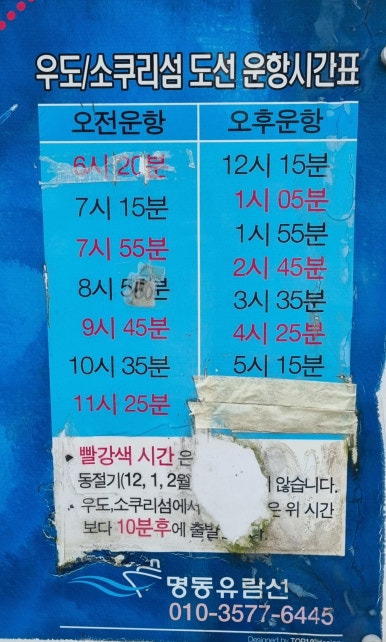 우도/소쿠리섬 도선 운항시간표
오전운항
오후운항
6시 20분
12시 15분
7시 15분
1시 05분
7시 55분
1시 55분
8시 분
2시 45분
9시 45분
3시 35분
10시 35분
4시 25분
11시 25분
5시 15분
빨강색 시간은
동절기(12, 1, 2월 지 않습니다.
우도,소쿠리섬에서 은 위 시간
보다 10분후에 출발
명동유람선
010-3577-6445
Designed by